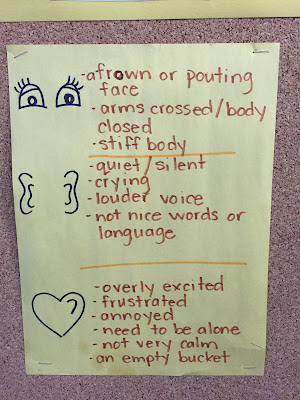 -afrown or pouting
face
-arms crossed/body
closed
-stiff body
-quiet/silent
-crying
-louder voice
-not nice words or
language
-overly excited
-frustrated
-annoyed
-need to be alone
-not very calm
-an empty bucket